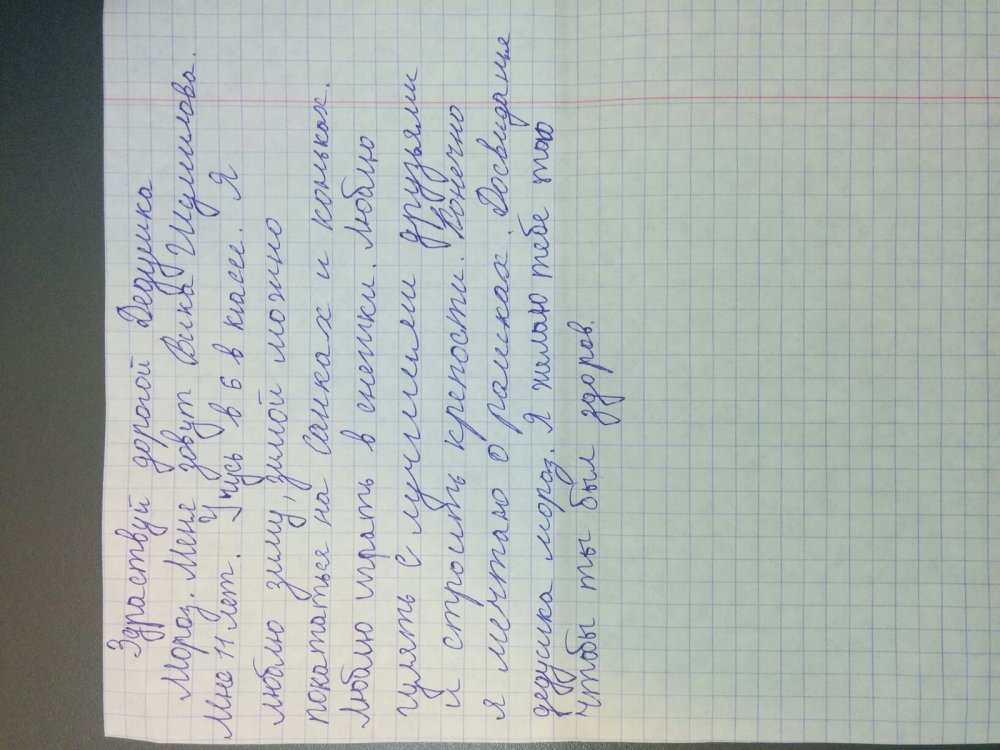 Здраствуй дорогой Дедушка
Мороз. Меня зовут Вика Шумилова.
Мне 11 лет. Учусь в 6 в классе. Я
люблю зиму, зимой можно
покататься на санках и коньках.
Люблю играть в снежки. Люблю
гулять с лучшими друзьями
и строить крепости. Конечно
я мечтаю о роликах. Досвиданья
дедушка мороз. Я желаю тебе
чтобы ты был здоров.